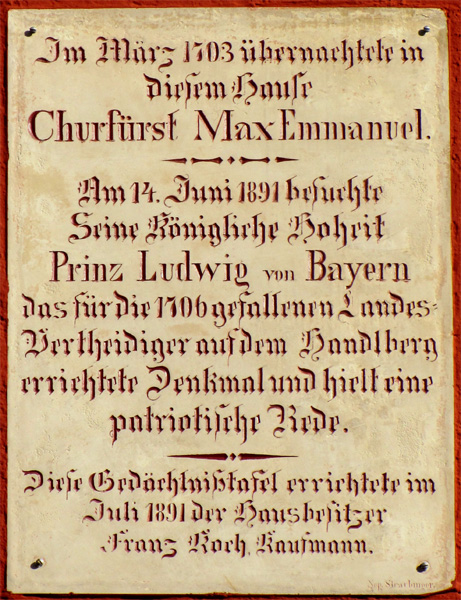 Im März 1703 übernachtete in
diesem Hause
Churfürst Max Emmanuel.
Am 14. Juni 1891 besuchte
Seine Königliche Hoheit
Prinz Ludwig von Bayern
das für die 1706 gefallenen Landes-
Vertheidiger auf dem Handlberg
errichtete Denkmal und hielt eine
patriotische Rede.
Diese Gedächtnißtafel errichtete im
Juli 1891 der Hausbesitzer
Franz Koch, Kaufmann.